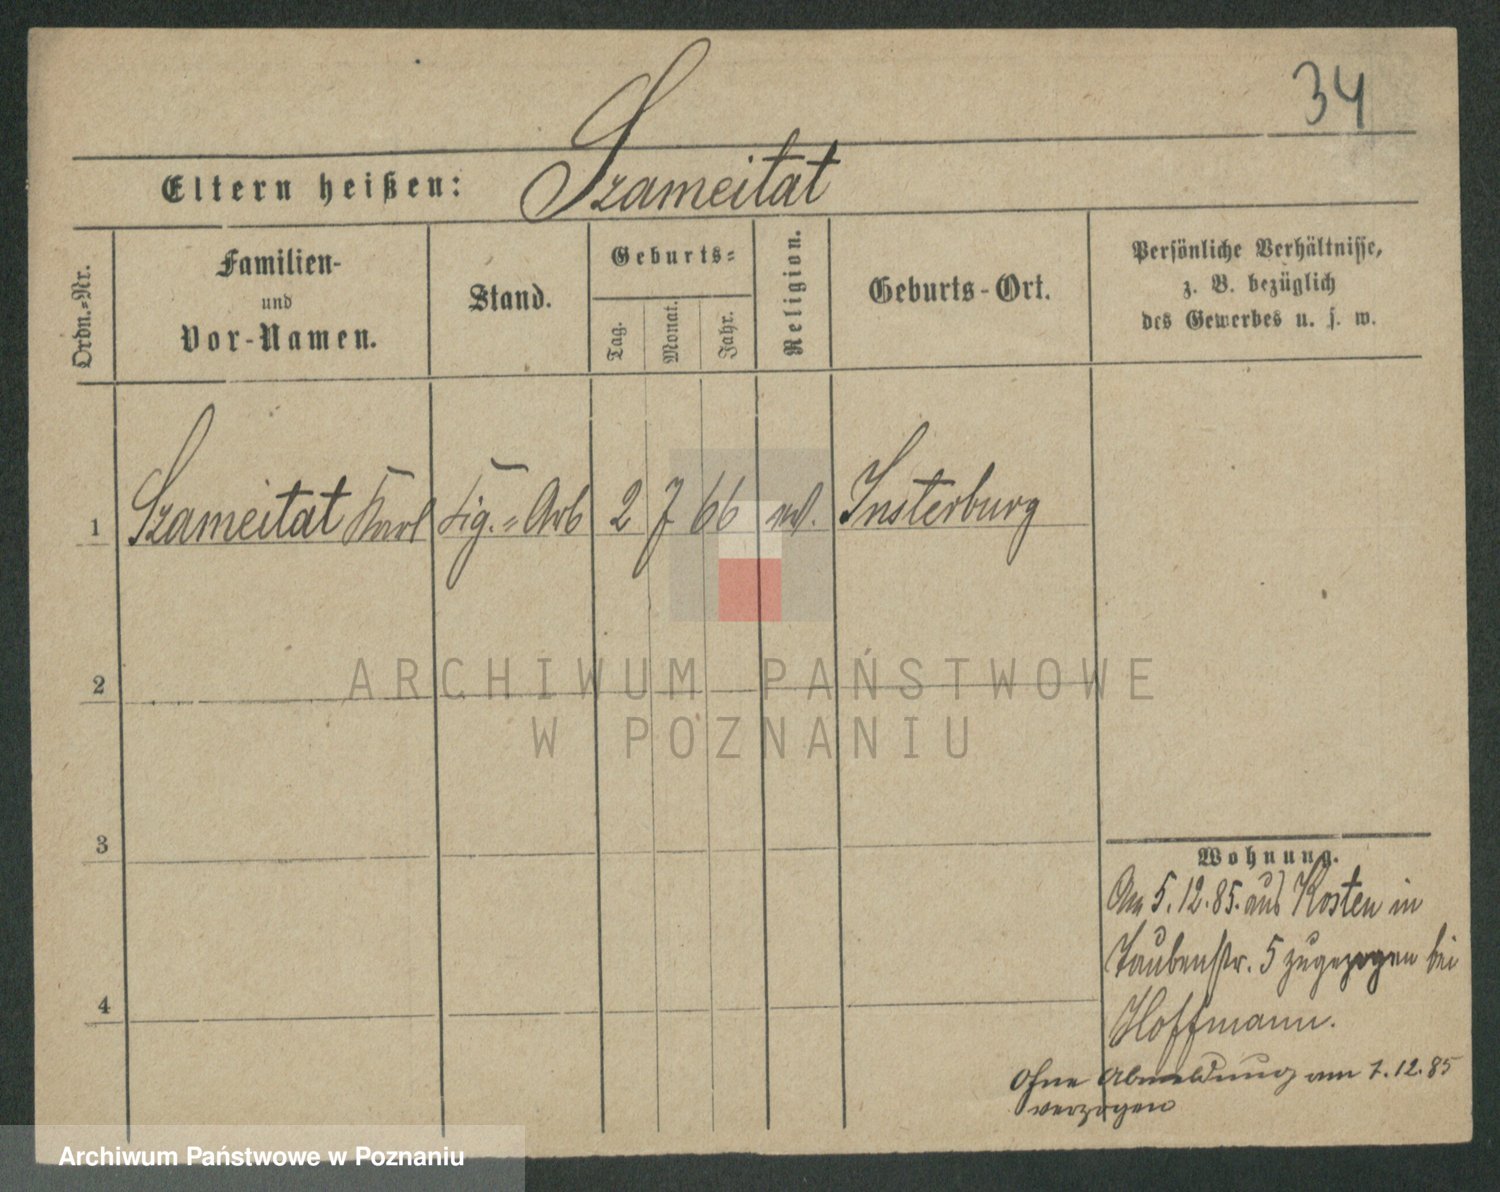 34
Eltern heißen: Szameitat
Ordn.-Nr.
Familien-
und
Vor-Namen.
Stand.
Geburts-
Tag.
Monat.
Jahr.
Religion.
Geburts-Ort.
Persönliche Verhältnisse,
z. B. bezüglich
des Gewerbes u. s. w.
1 Szameitat Karl Zig.-Arb 2 7 66 Insterburg
2
3
4
Wohnung.
Am 5.12.85. aus Kosten in
Taubenstr. 5 zugezogen bei
Hoffmann.
Ohne Abmeldung am 7.12.85
verzogen
ARCHIWUM PAŃSTWOWE
W POZNANIU
Archiwum Państwowe w Poznaniu